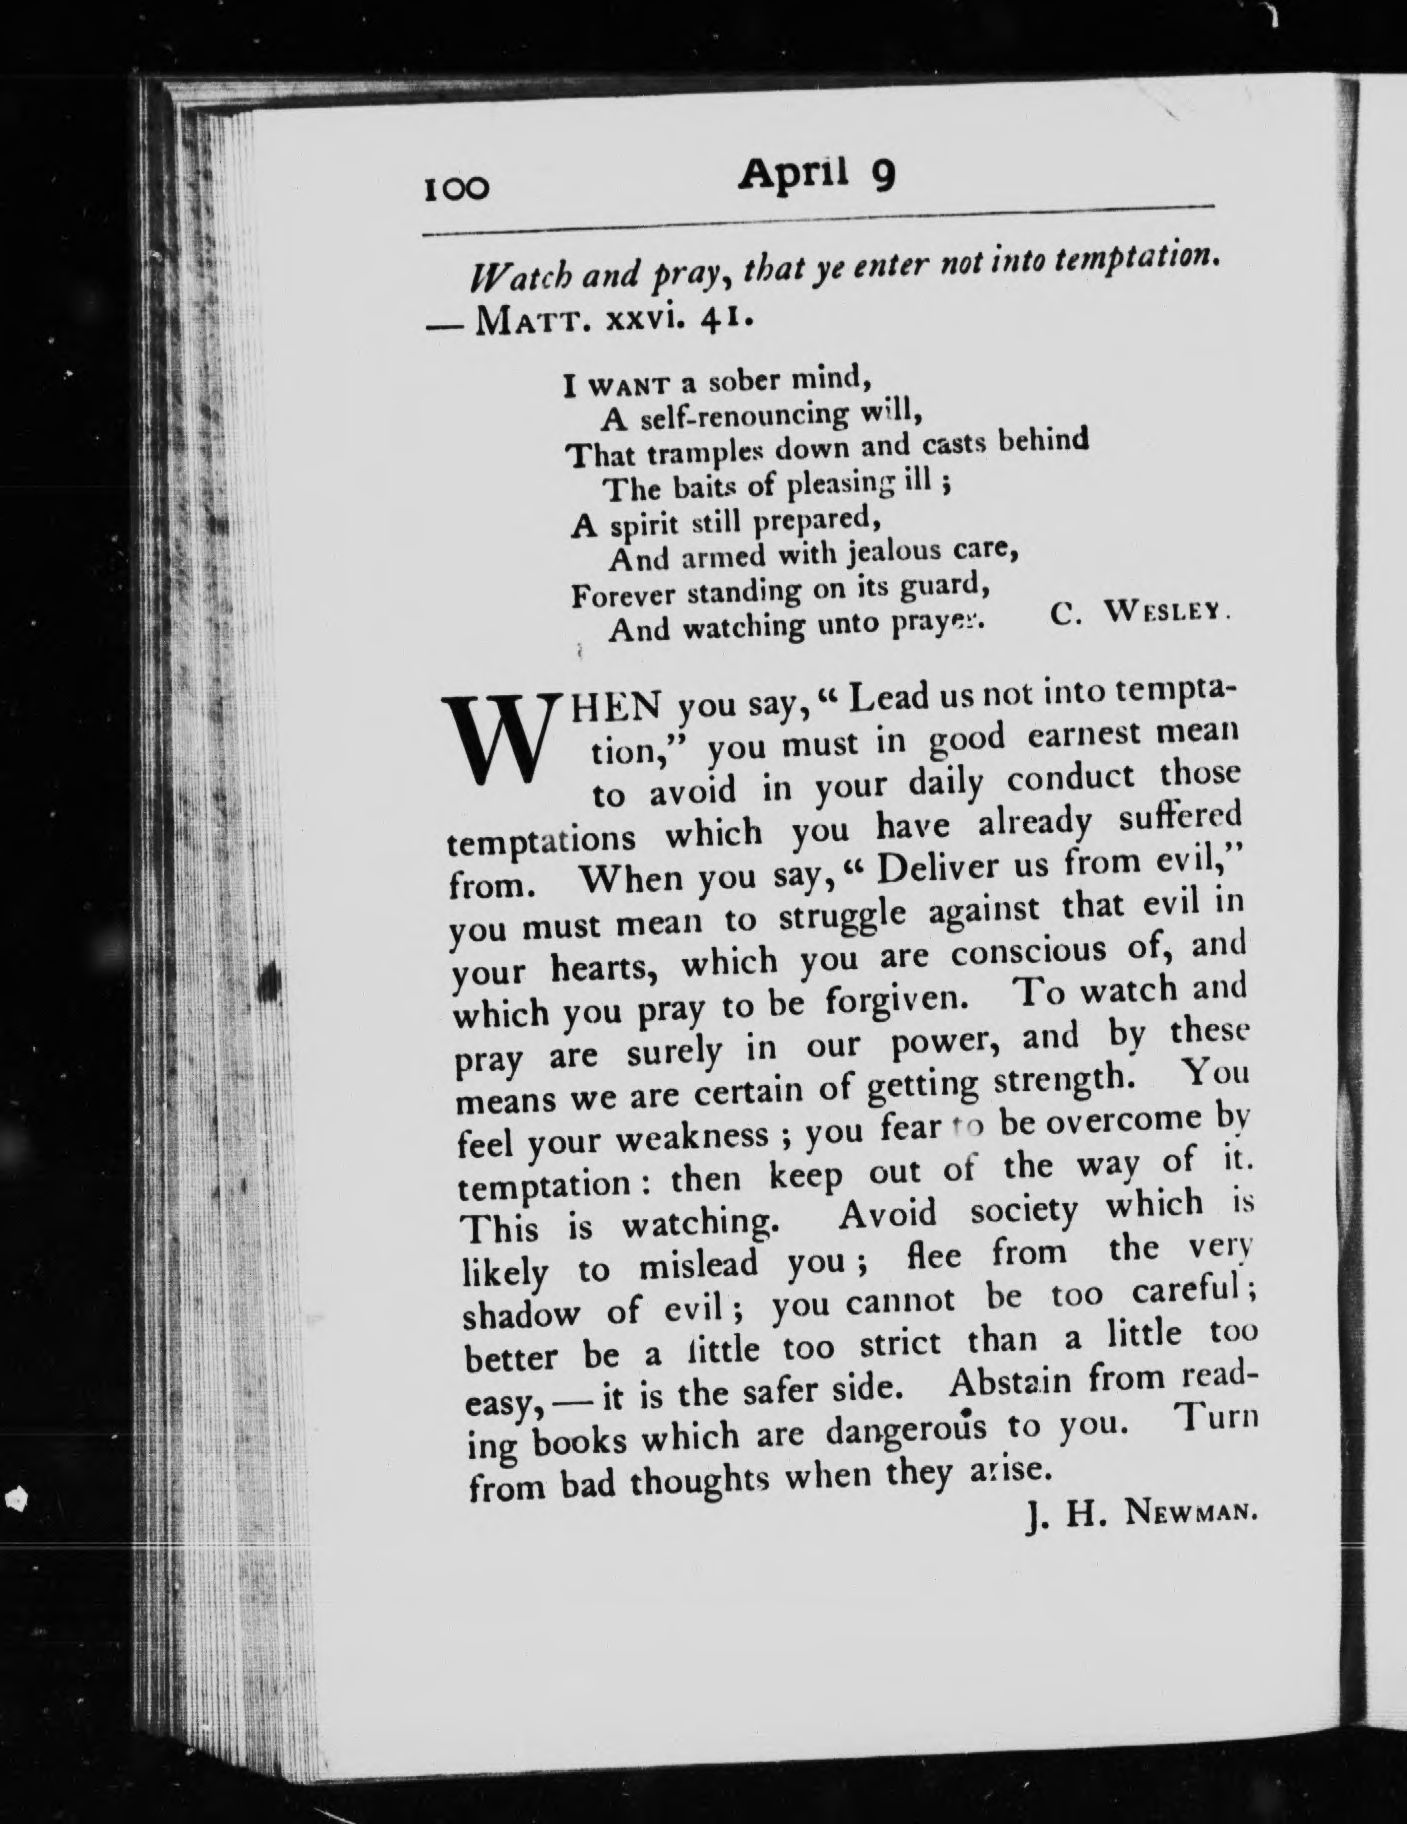 100
April 9
Watch and pray, that ye enter not into temptation.
— MATT. xxvi. 41.
I WANT a sober mind,
A self-renouncing will,
That tramples down and casts behind
The baits of pleasing ill ;
A spirit still prepared,
And armed with jealous care,
Forever standing on its guard,
And watching unto prayer. C. WESLEY.
WHEN you say, “ Lead us not into tempta-
tion,” you must in good earnest mean
to avoid in your daily conduct those
temptations which you have already suffered
from. When you say, “ Deliver us from evil,”
you must mean to struggle against that evil in
your hearts, which you are conscious of, and
which you pray to be forgiven. To watch and
pray are surely in our power, and by these
means we are certain of getting strength. You
feel your weakness ; you fear to be overcome by
temptation : then keep out of the way of it.
This is watching. Avoid society which is
likely to mislead you ; flee from the very
shadow of evil ; you cannot be too careful ;
better be a little too strict than a little too
easy, — it is the safer side. Abstain from read-
ing books which are dangerous to you. Turn
from bad thoughts when they arise.
J. H. NEWMAN.